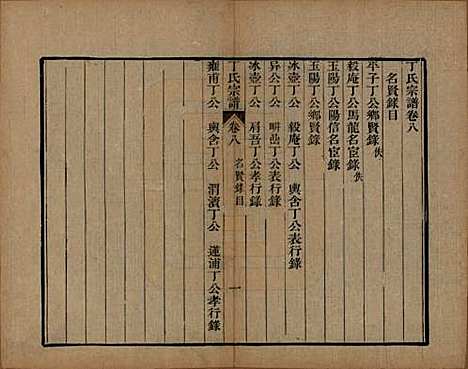 丁氏宗譜卷八
名賢錄目
平子丁公鄉賢錄佚
毅庵丁公馬龍名宦錄佚
玉陽丁公陽信名宦錄
玉陽丁公鄉賢錄
冰壺丁公 毅庵丁公 輿含丁公表行錄
異公丁公 畊嵒丁公表行錄
冰壺丁公 肩吾丁公孝行錄
丁氏宗譜 卷八 名賢錄目 一
雍甫丁公 輿含丁公 渭濱丁公 蓮浦丁公孝行錄